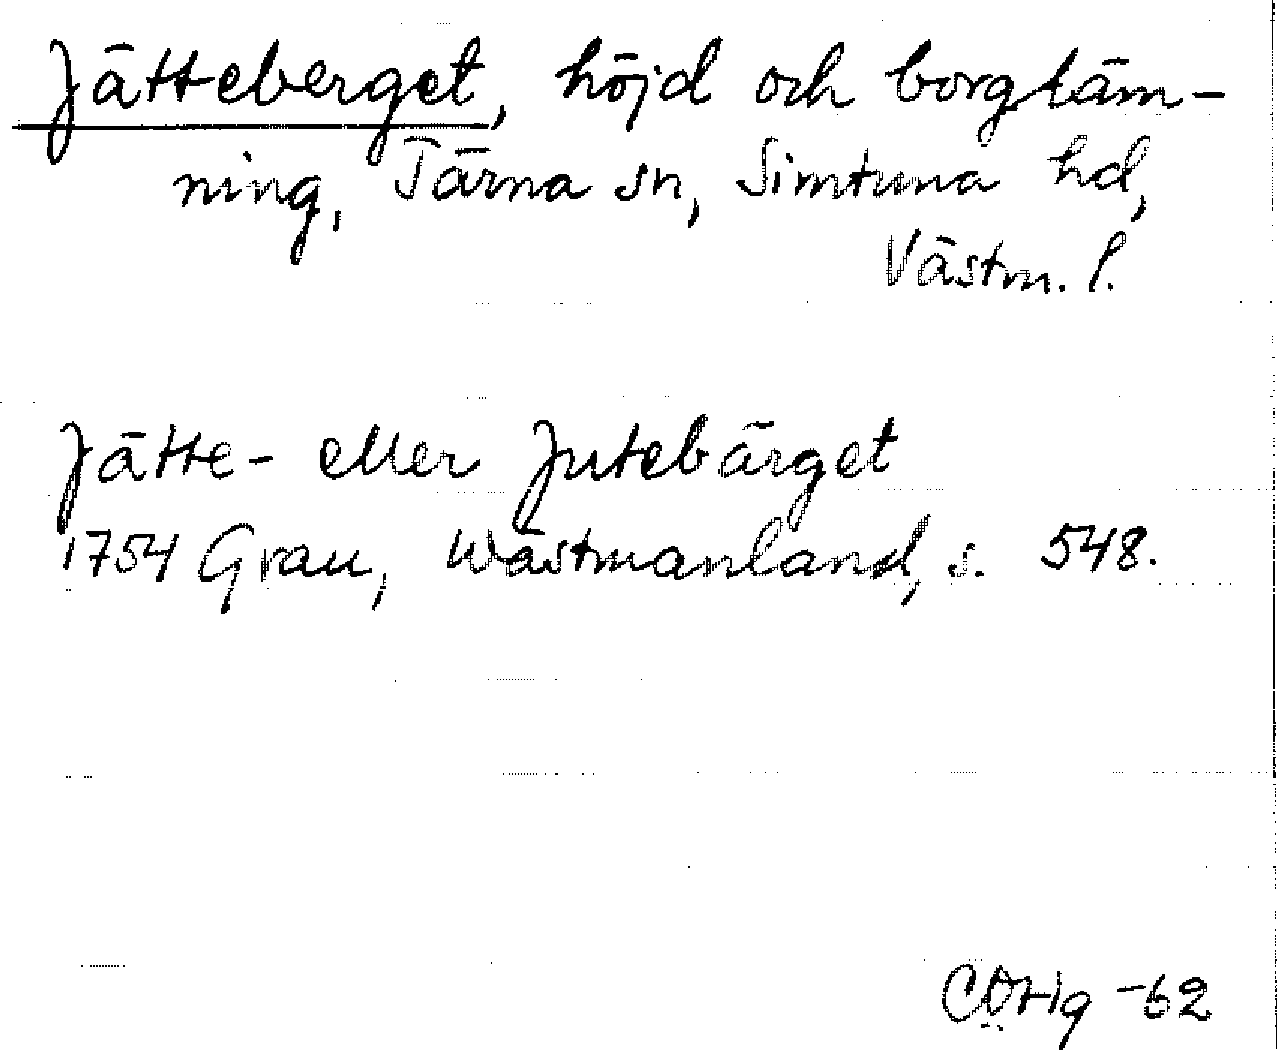 Jätteberget, höjd och borgläm-
ning, Tärna sn, Simtuna hd,
Västm. l.
Jätte- eller Jutebärget
1754 Grau, Wästmanland, s. 548.
-62